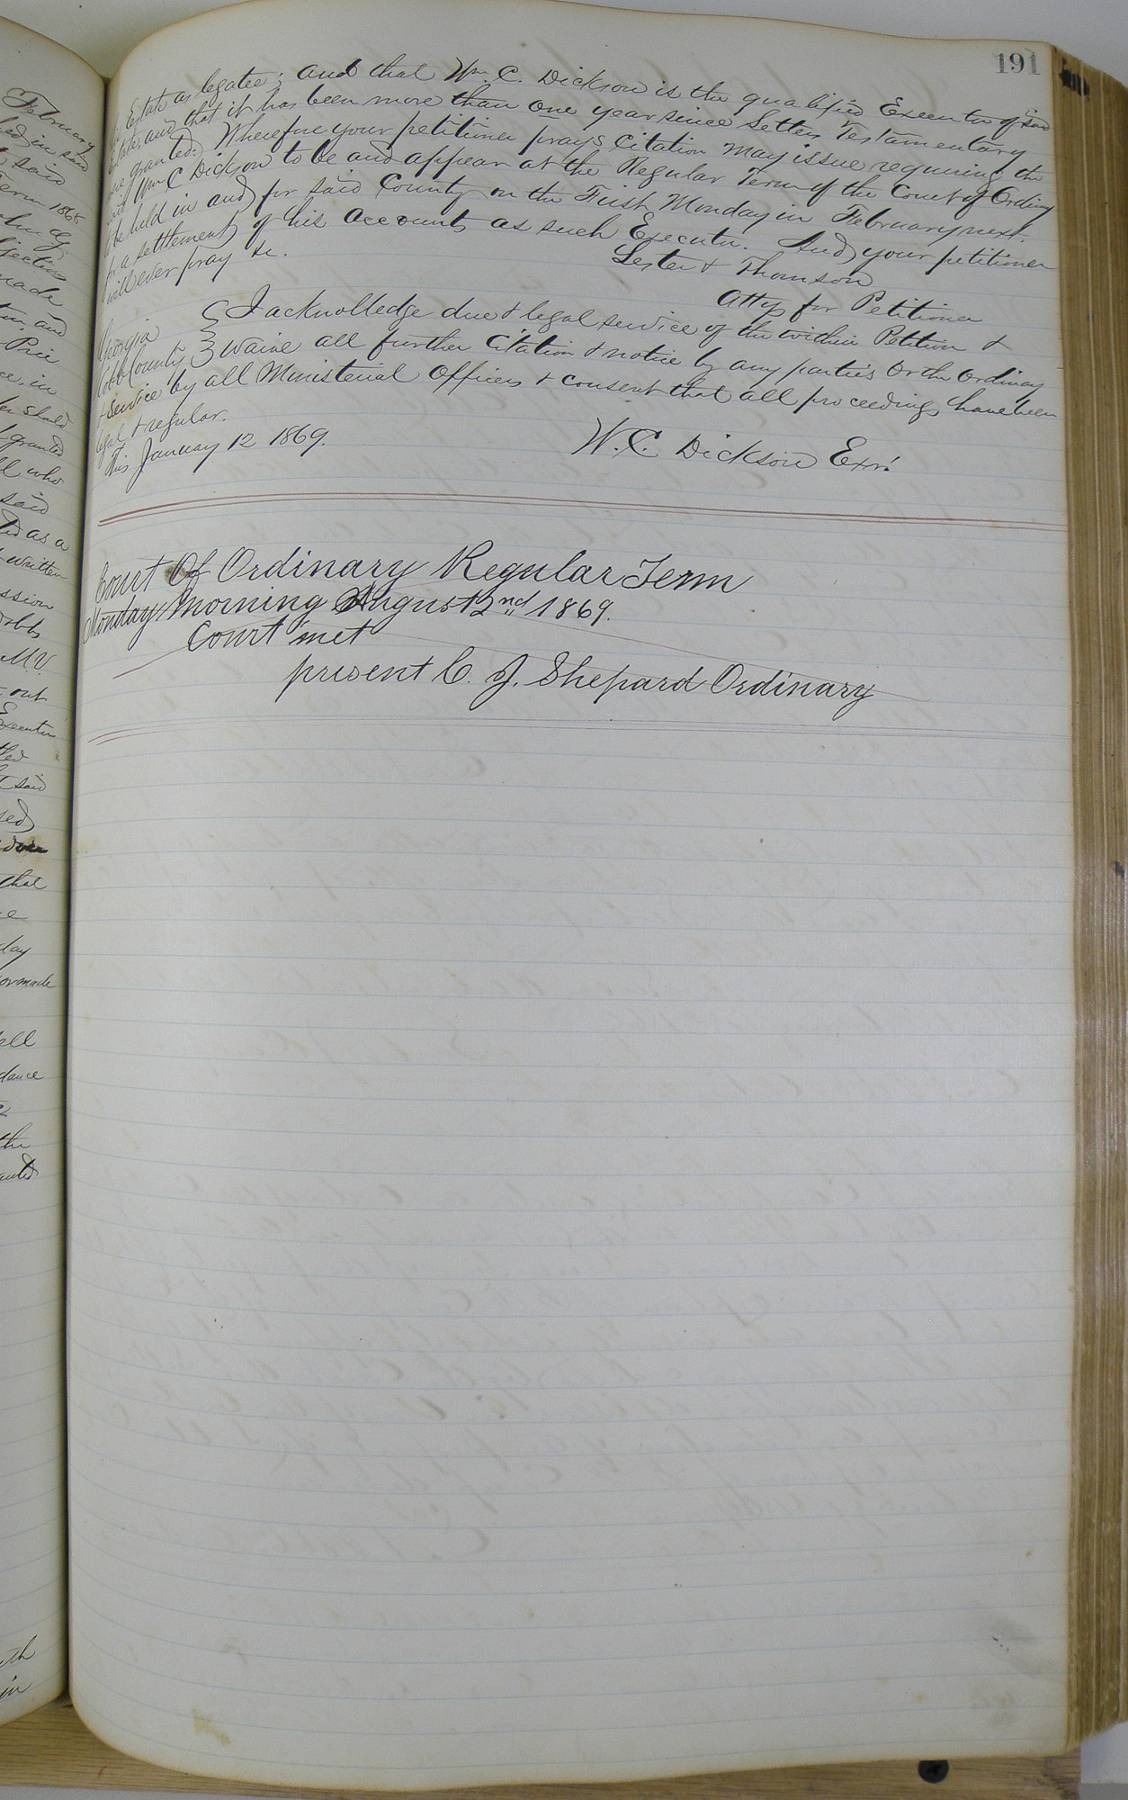 191
Estate as legatee; and that Wm. C. Dickson is the qualified Executor of said
Estate, and that it has been more than one year since Letters Testamentary
were granted. Wherefore your petitioner prays Citation may issue requiring the
said Wm C Dickson to be and appear at the Regular Term of the Court of Ordinary
to be held in and for said County on the First Monday in February next.
for a settlement of his accounts as such Executor. And your petitioner
will ever pray &c.
Lester & Thomson
Attys for Petitioner
Georgia
Cobb County
I acknolledge due & legal service of the within Petition &
waive all further Citation & notice by any parties or the Ordinary
& service by all Ministerial Officers & consent that all proceedings have been
legal & regular.
This January 12 1869.
W. C. Dickson Exr.
Court Of Ordinary Regular Term
Monday Morning August 2nd 1869.
Court met
present C. J. Shepard Ordinary
February
said
Term 1868
made
and
Price
in
should
granted
who
said
as a
written
M. V.
out
Executor
said
that
day
all
the
in